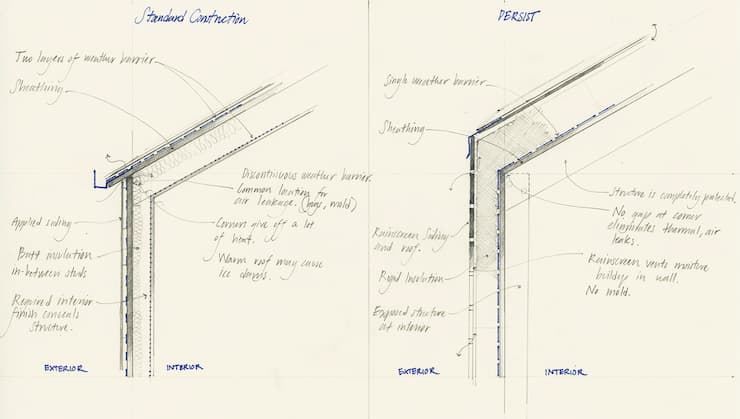 Standard Construction
Two layers of weather barrier
Sheathing
Discontinuous weather barrier.
Common location for
air leakage. (bugs, mold)
Corners give off a lot
of heat.
Warm roof may cause
ice damns.
Applied siding
Batt insulation
in-between studs
Required interior
finish conceals
structure.
EXTERIOR
INTERIOR
PERSIST
Single weather barrier
Sheathing
Structure is completely protected.
No gaps at corner
eliminates thermal, air
leaks.
Rainscreen Siding
and roof.
Rigid Insulation
Rainscreen vents moisture
buildup in wall.
No mold.
Exposed structure
at interior
EXTERIOR
INTERIOR